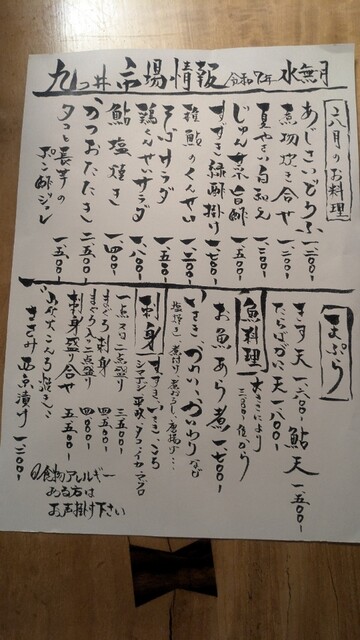 九つ井 市場情報 令和7年 水無月
六月のお料理
あじさいどうふ 一、二〇〇-
煮物炊き合せ 一、二〇〇-
夏やさい白和え 一、二〇〇-
じゅん菜旨酢 一、五〇〇-
すずき緑酢掛り 一、七〇〇-
稚鮎のくんせい 一、二〇〇-
そばサラダ 一、五〇〇-
鶏くんせいサラダ 一、八〇〇-
鮎塩焼き 一、四〇〇-
かつおたたき 二、五〇〇-
タコと長芋の
ポン酢ジュレ 一、五〇〇-
天ぷら
きす天 一、六〇〇- 鮎天 一、五〇〇-
たらばがに天 一、八〇〇-
魚料理
大きさにより
三、〇〇〇-位から
お魚あら煮 一、七〇〇-
いさき、かれい、かいわりなど
塩焼き、煮付け、煮おろし、唐揚げ…
刺身
すずき、いさき、こち
シマアジ、平政、タコ、イカ、マグロ
一点又は二点盛り 三、五〇〇-
まぐろ刺身 四、五〇〇-
まぐろ入り二点盛り 四、〇〇〇-
刺身盛り合せ 五、五〇〇-
炊火こんろ焼き
ささみ西京漬け 一、二〇〇-
食物アレルギー
ある方は
お声掛け下さい